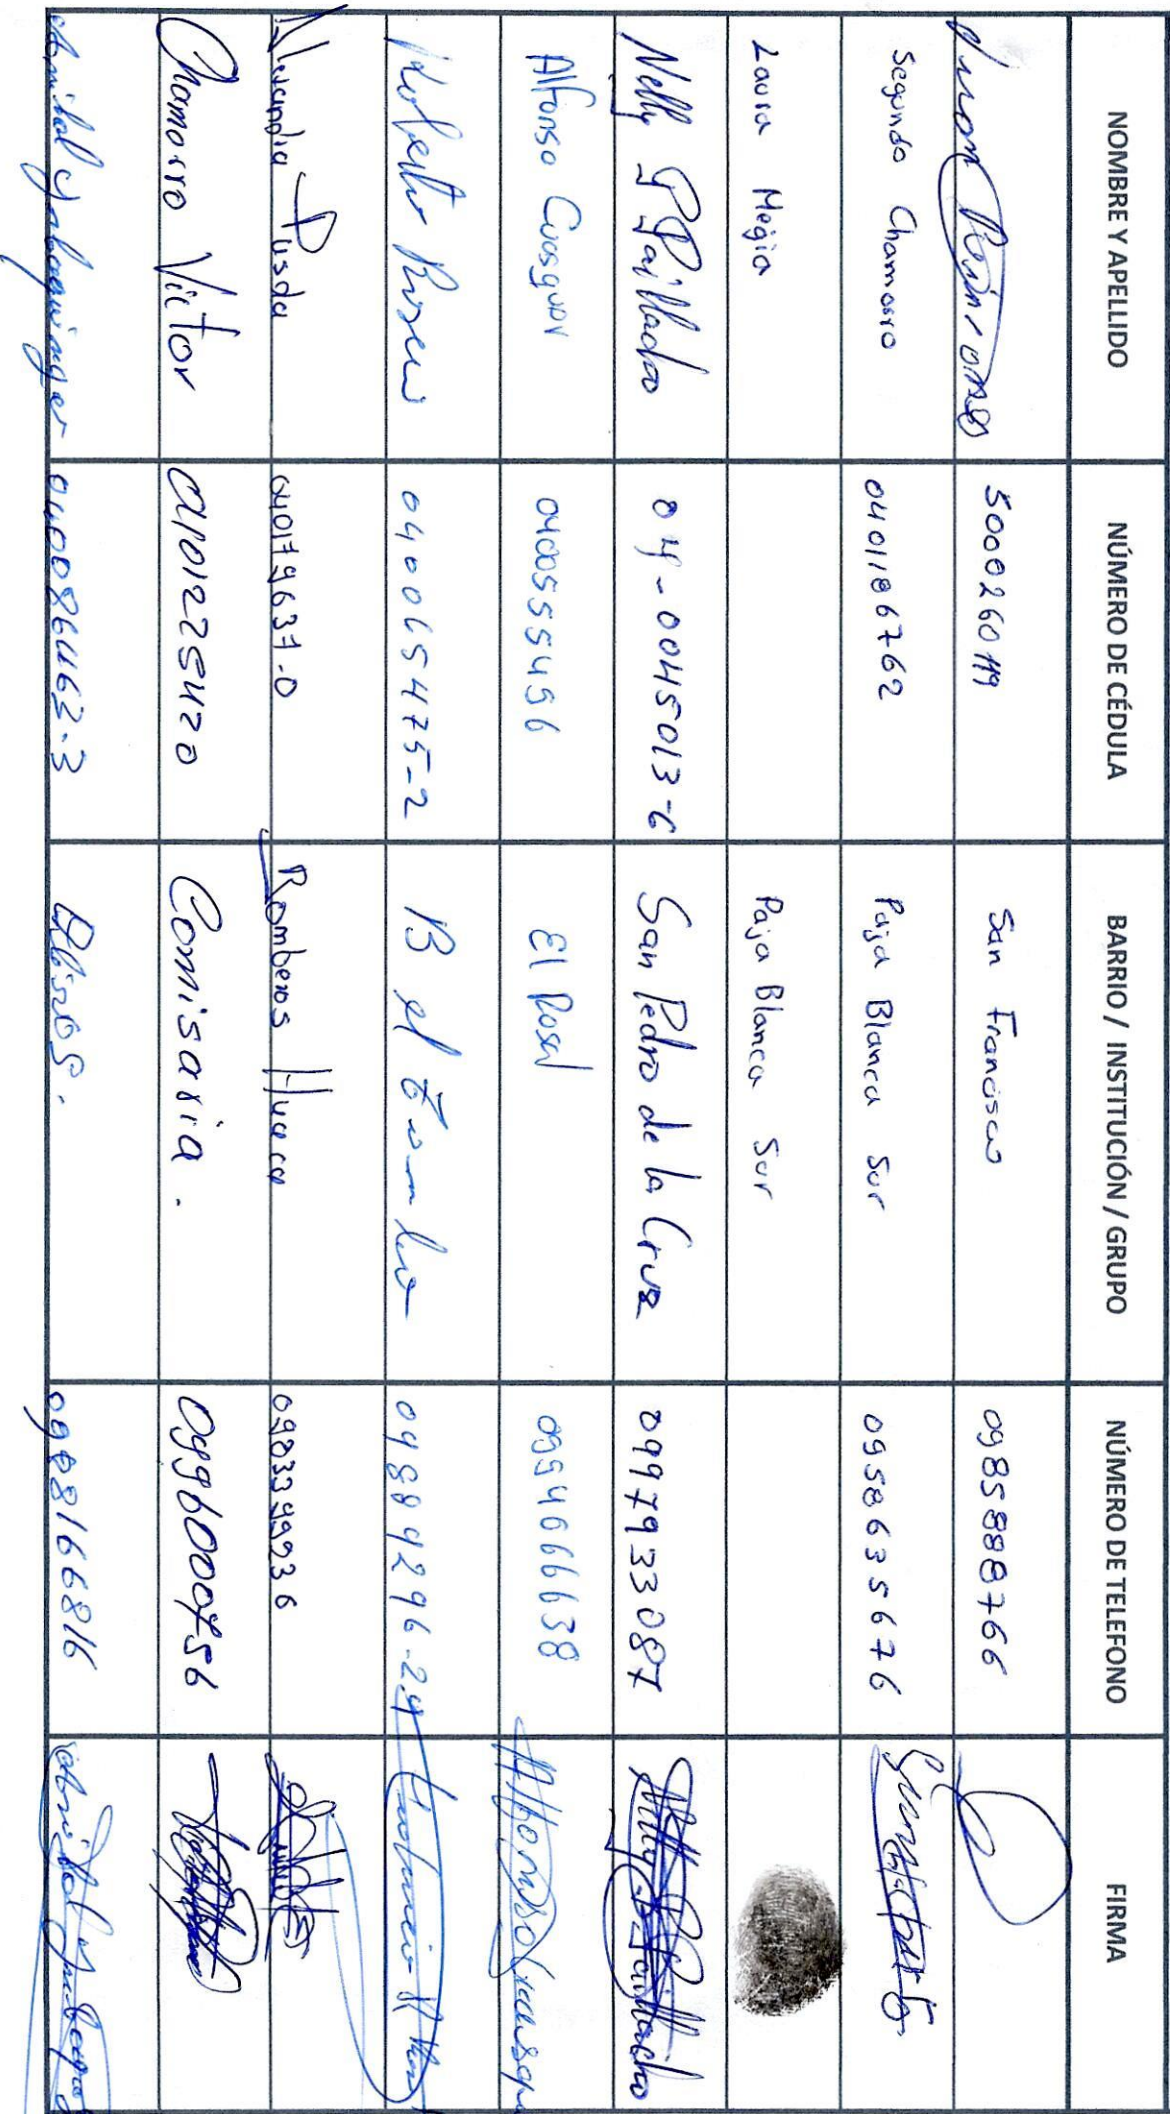 NOMBRE Y APELLIDO NÚMERO DE CÉDULA BARRIO / INSTITUCIÓN / GRUPO NÚMERO DE TELEFONO FIRMA
5000260119 San Francisco 0985888766
Segundo Chamorro 0401186762 Paja Blanca Sur 0958635676
Laura Megia Paja Blanca Sur
Nelly P Paillacho 04-0045013-6 San Pedro de la Cruz 0997933087
Alfonso Cuasquer 0400555456 El Rosal 0994066638 Alfonso
Roberto Rosero 040065475-2 B el 098894296-24
Alexandra Pusda 040179637-0 Bomberos Huaca 0983399236
Chamorro Victor 0401225420 Comisaria. 0996000756
040086463-3 0988166816